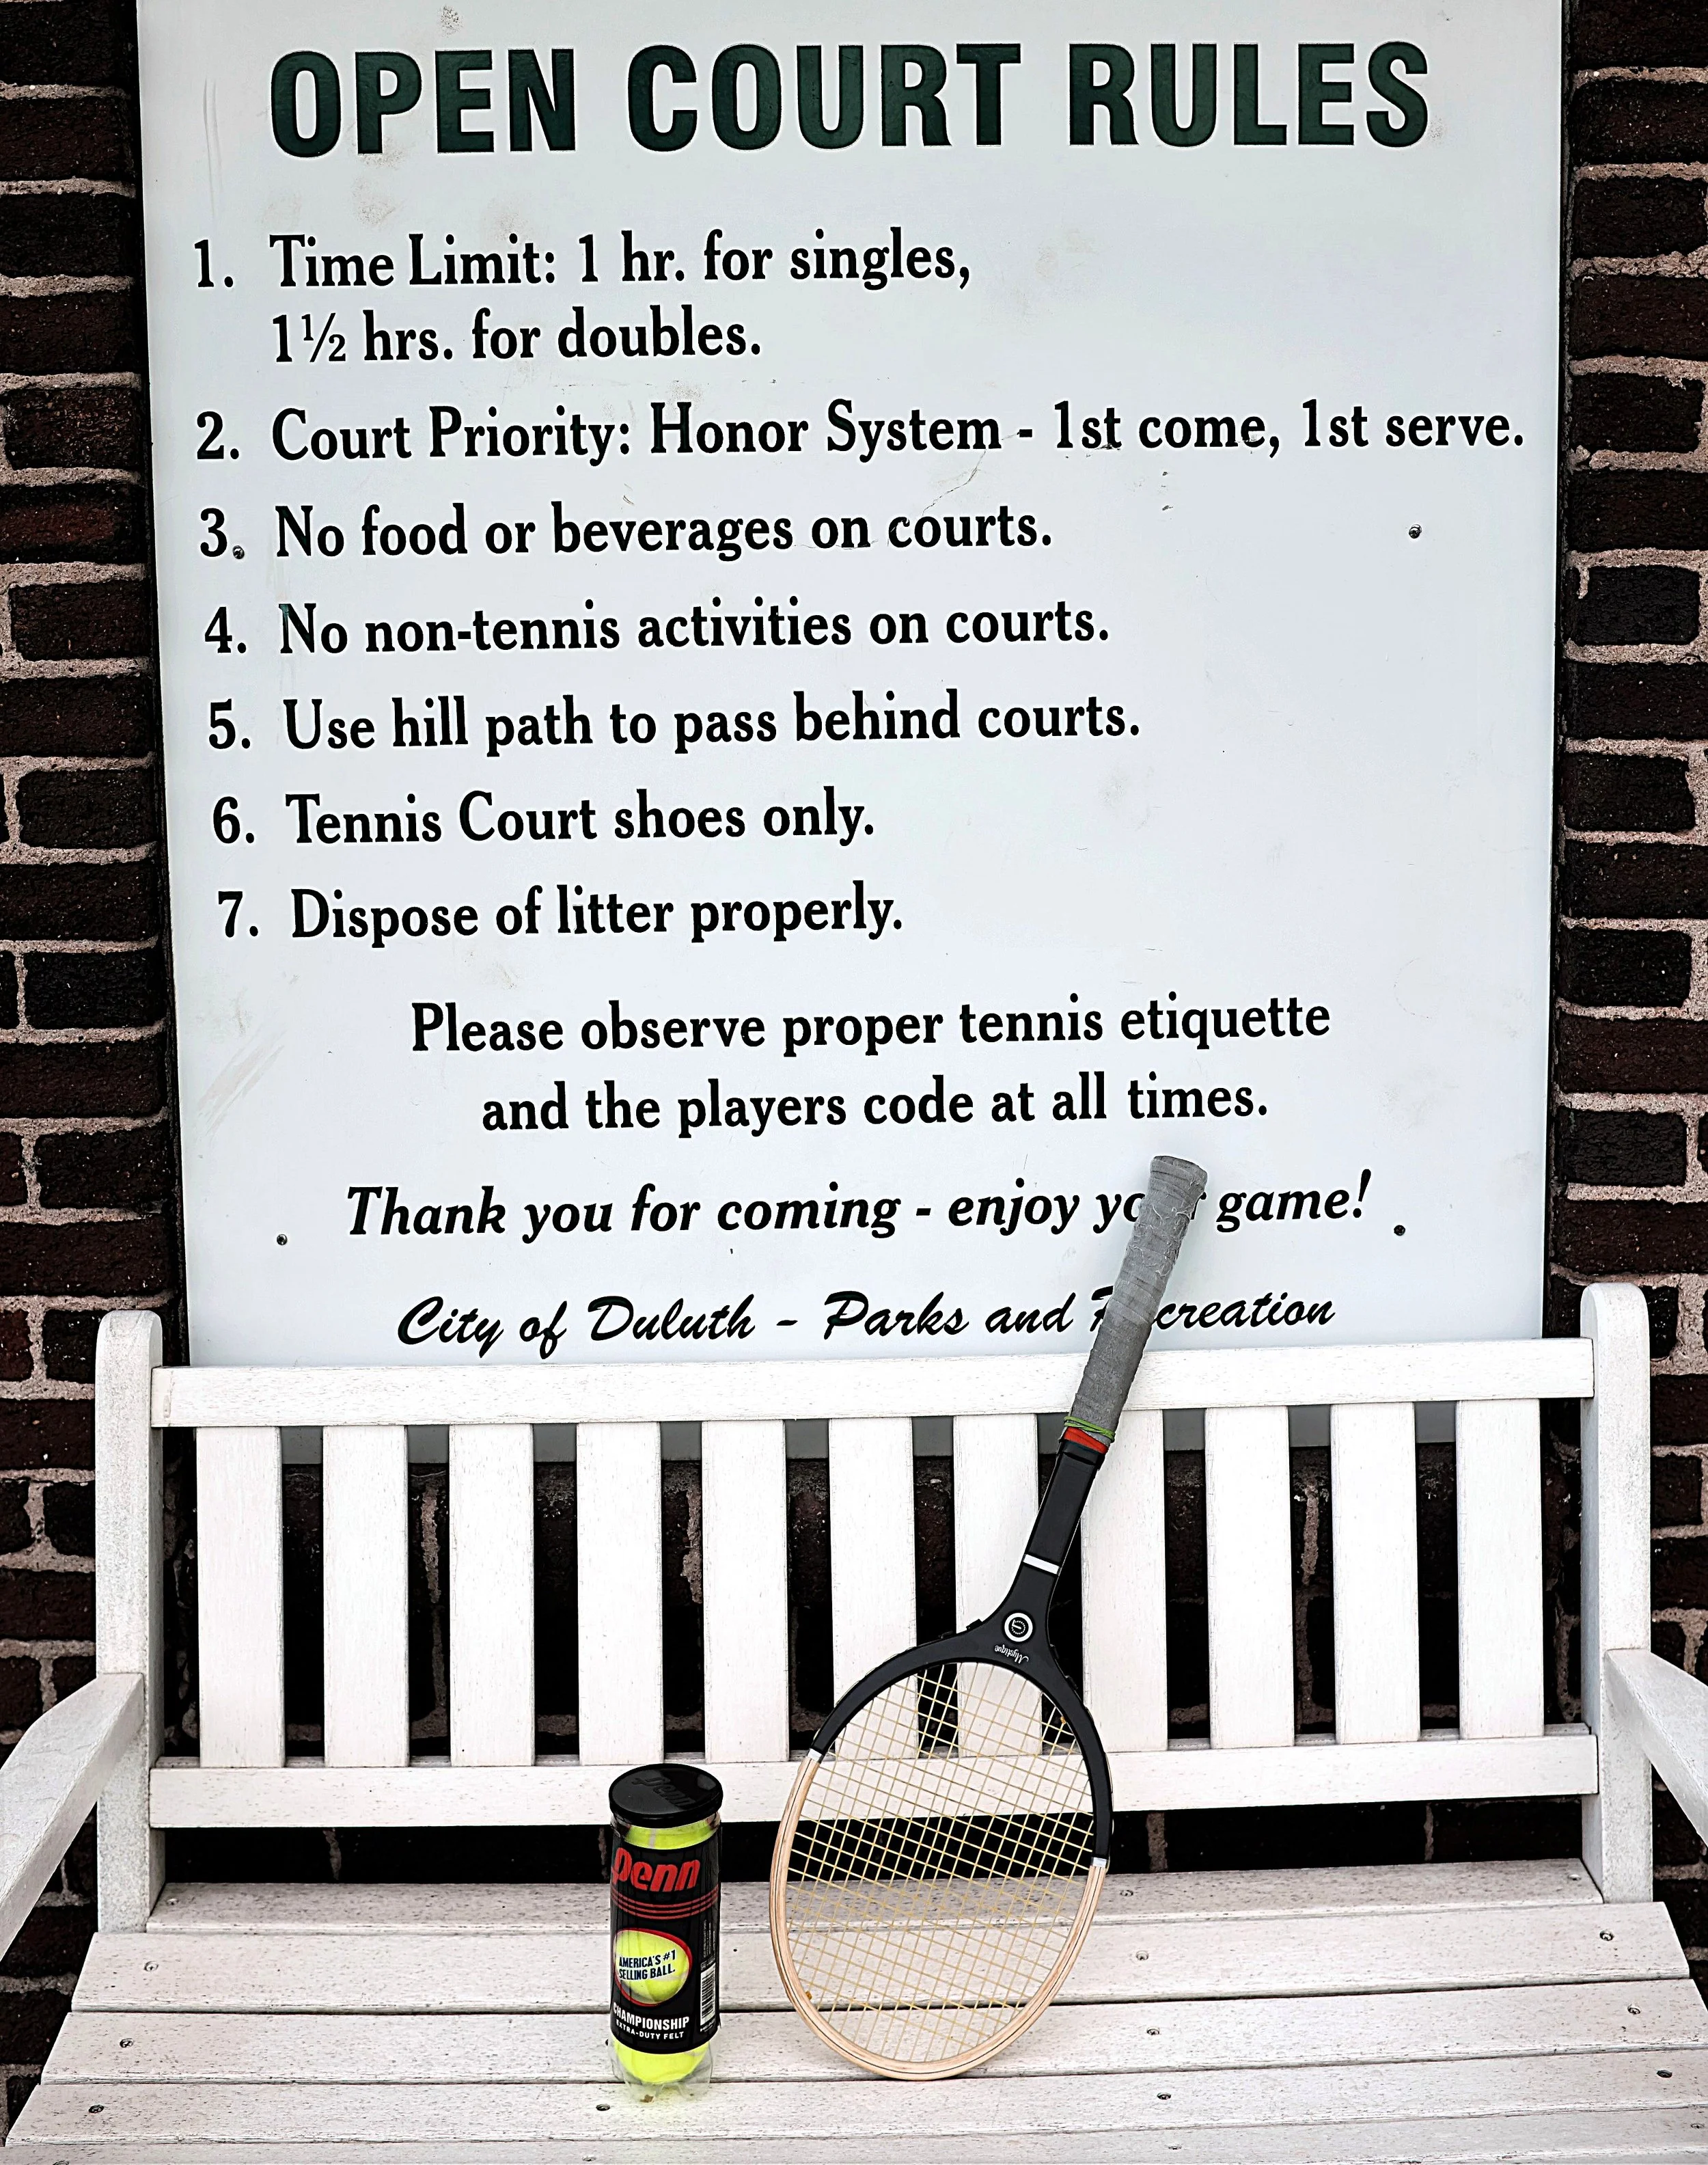 OPEN COURT RULES
1. Time Limit: 1 hr. for singles,
1½ hrs. for doubles.
2. Court Priority: Honor System - 1st come, 1st serve.
3. No food or beverages on courts.
4. No non-tennis activities on courts.
5. Use hill path to pass behind courts.
6. Tennis Court shoes only.
7. Dispose of litter properly.
Please observe proper tennis etiquette
and the players code at all times.
Thank you for coming - enjoy your game!
City of Duluth - Parks and Recreation
Mystique
Penn
Penn
AMERICA'S #1
SELLING BALL.
CHAMPIONSHIP
EXTRA-DUTY FELT